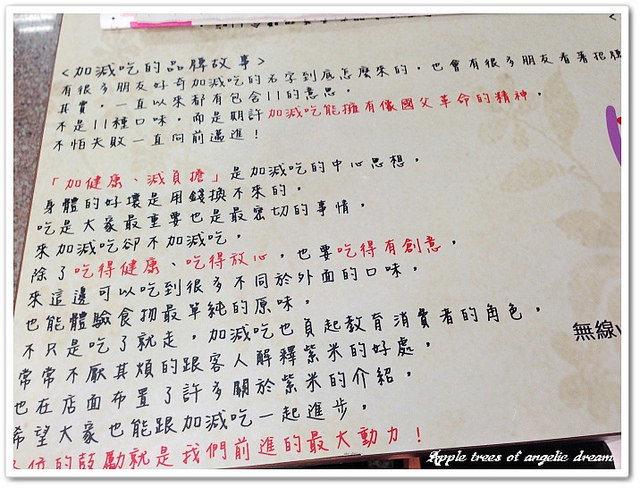 <加減吃的品牌故事>
有很多朋友好奇加減吃的名字到底怎麼來的，也會有很多朋友看著招牌
其實，一直以來都有包含11的意思，
不是11種口味，而是期許加減吃能擁有像國父革命的精神，
不怕失敗一直向前邁進！
「加健康、減負擔」是加減吃的中心思想，
身體的好壞是用錢換不來的，
吃是大家最重要也是最密切的事情，
來加減吃卻不加減吃，
除了吃得健康、吃得放心，也要吃得有創意，
來這邊可以吃到很多不同於外面的口味，
也能體驗食物最單純的原味，
不只是吃了就走，加減吃也負起教育消費者的角色，
常常不厭其煩的跟客人解釋紫米的好處，
也在店面布置了許多關於紫米的介紹，
希望大家也能跟加減吃一起進步，
位的鼓勵就是我們前進的最大動力！
無線
Apple trees of angelic dream